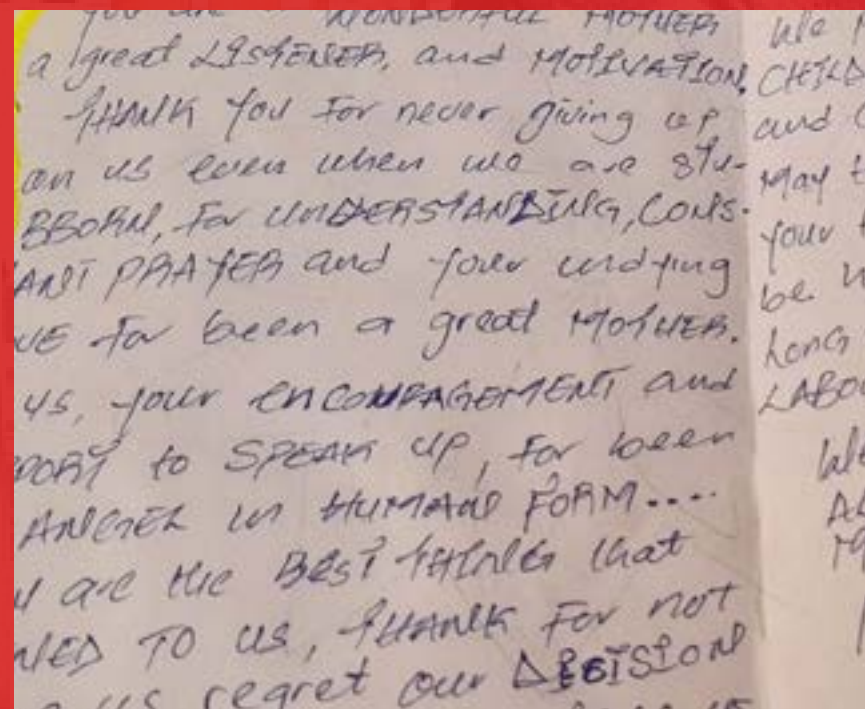 you are WONDERFUL MOTHER
a great LISTENER, and MOTIVATION.
THANK you For never giving up
on us even when we are STU-
BBORN, For UNDERSTANDING, CONS-
ANT PRAYER and your undying
VE for been a great MOTHER.
us, your ENCOURAGEMENT and
PPORT to SPEAK UP, For been
ANGEL in HUMAN FORM....
U are the BEST THING that
NED TO US, THANK For not
us regret our DECISION
We
CHILD
and
May
your
be
Long
LABO
We